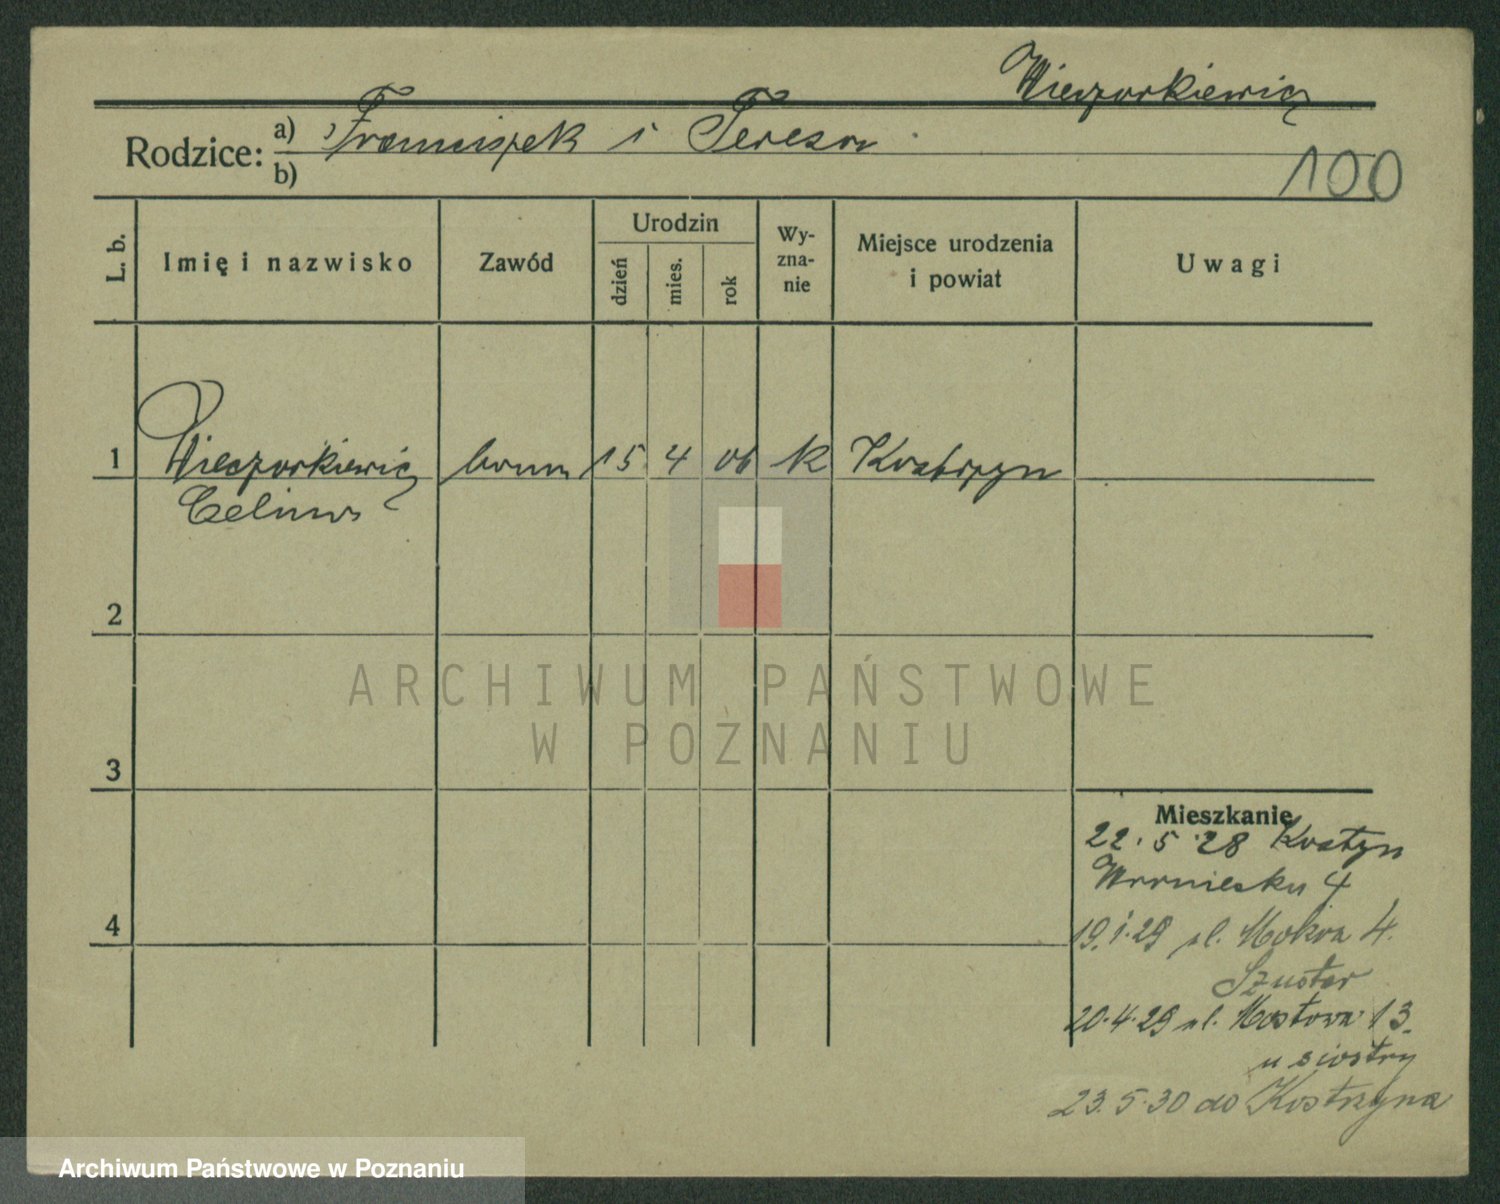 Wieczorkiewicz
Rodzice: a) Franciszek i Teresa
b)
100
L. b.
Imię i nazwisko
Zawód
Urodzin
dzień
mies.
rok
Wy-
zna-
nie
Miejsce urodzenia
i powiat
Uwagi
1 Wieczorkiewicz 15 4 06 k Kostrzyn
Celina
2
ARCHIWUM PAŃSTWOWE
W POZNANIU
3
Mieszkanie
22.5.28
4
4
19.1.29 ul. Mokra 4.
Szuster
20.4.29 ul. Mostowa 13.
u siostry
23.5.30 do Kostrzyna
Archiwum Państwowe w Poznaniu